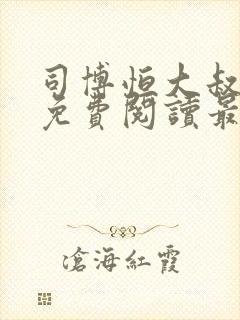 司博恒大叔
免費閱讀最
滄海紅霞